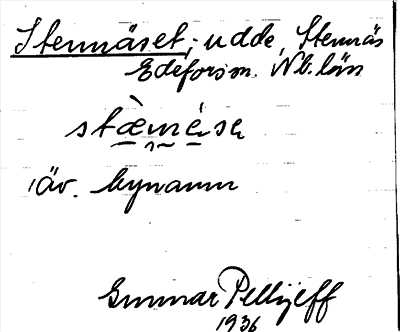 Stennäset, udde, Stennäs
Edefors sn. Nb. län
stæ̀nésə
äv. bynamn
Gunnar Pellijeff
1936